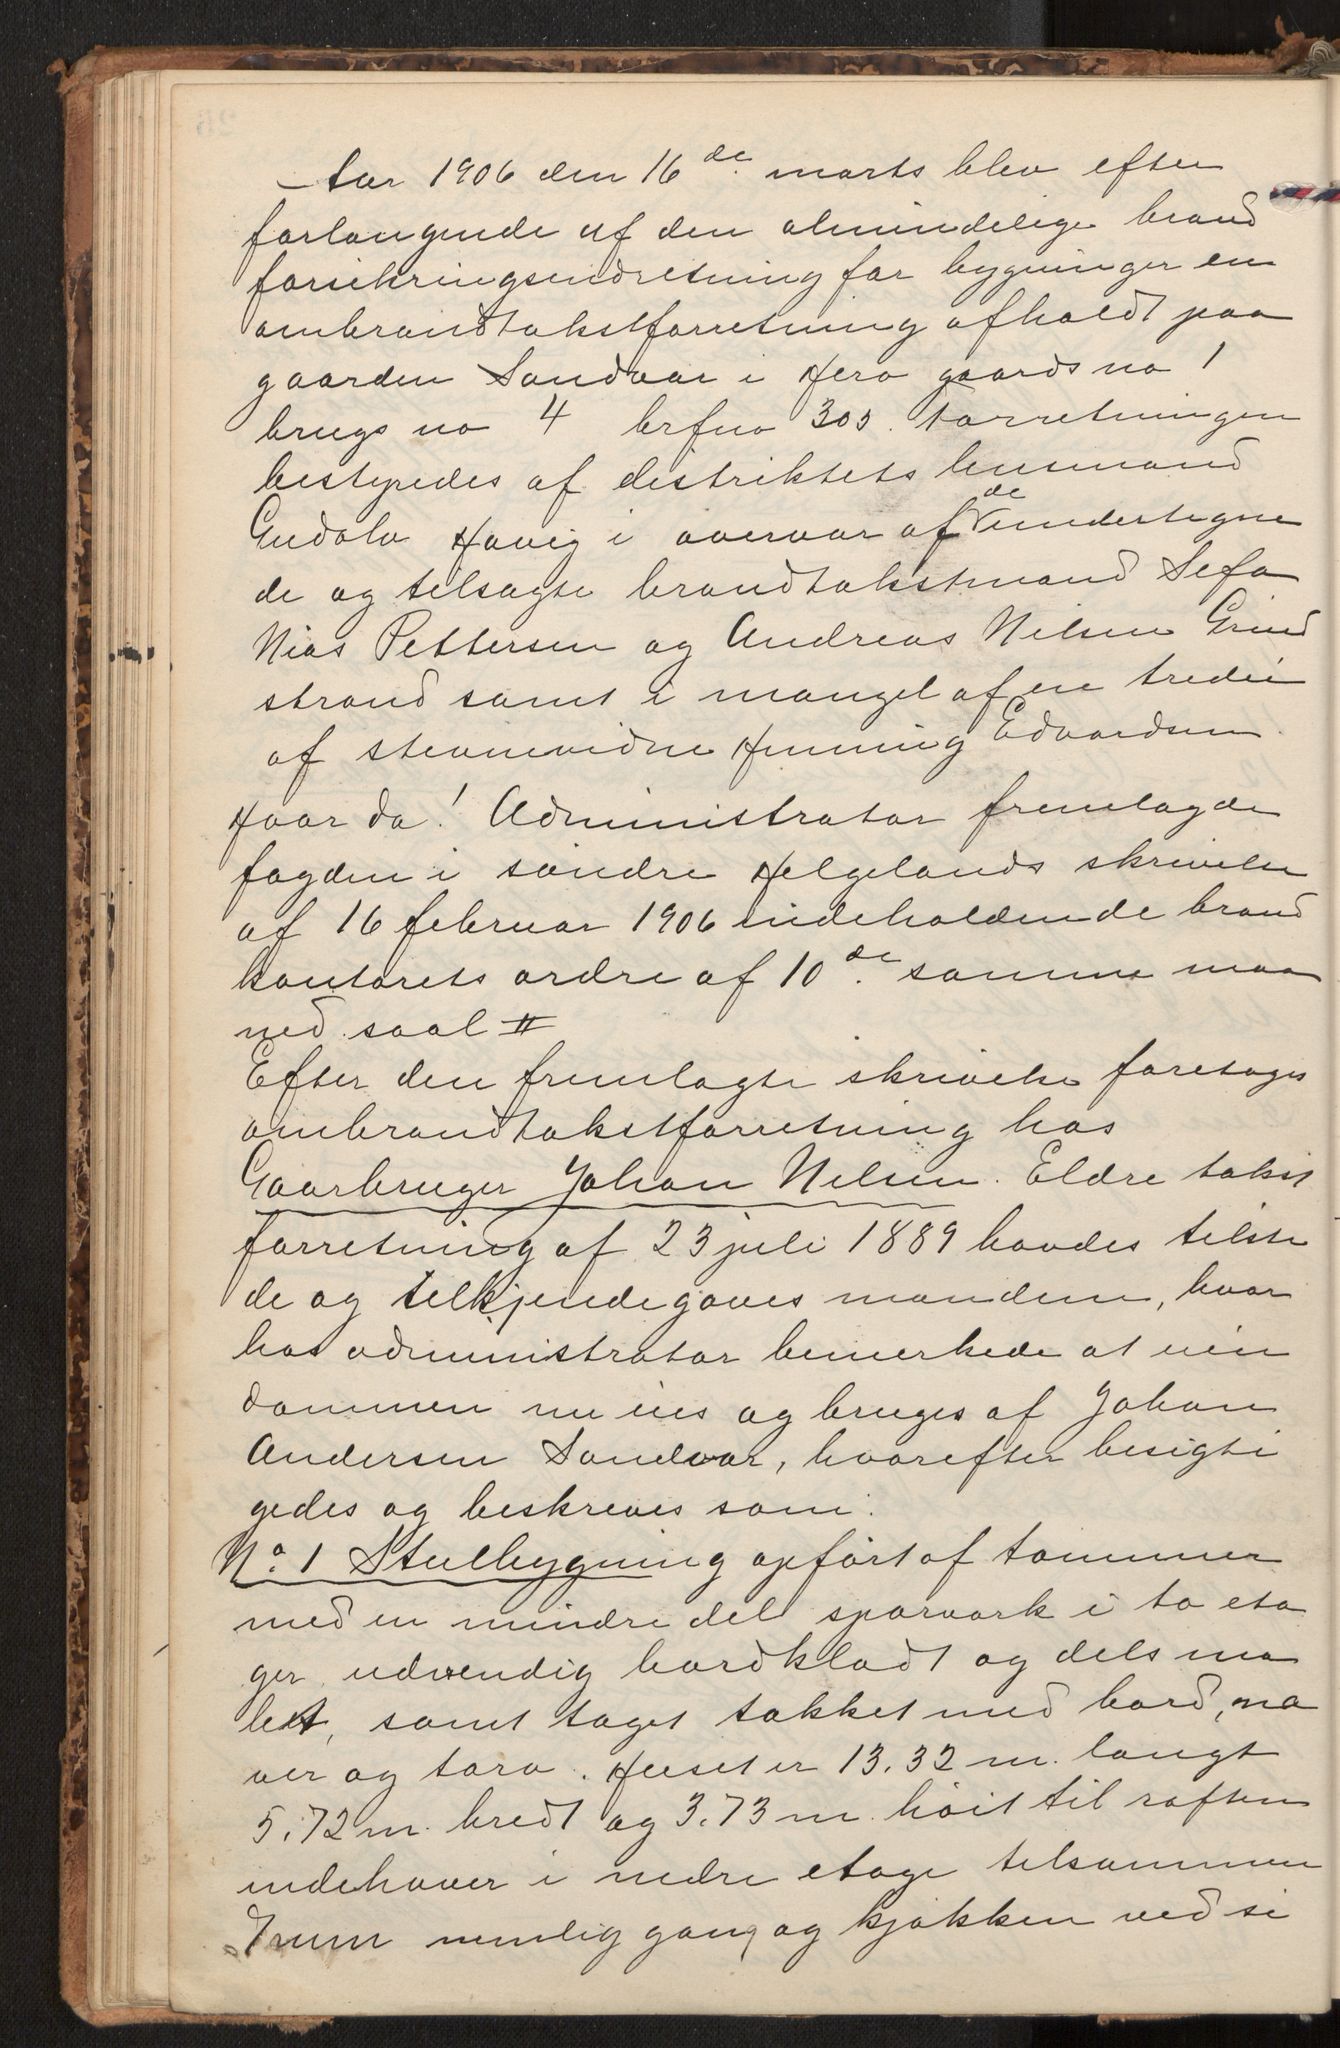 Aar 1906 den 16de marts blev efter
forlangende af den almindelige brand
forsikringsindretning for bygninger en
ombrandtakstforretning afholdt paa
gaarden Sandvær i Herø gaards no 1
brugs no 4 brfno 305. Forretningen
bestyredes af distriktets lensmand
Gudolv Havig i overvær af de undertegne
de og tilsagte brandtakstmænd Sefa
Nias Pettersen og Andreas Nilsen Grind
strand samt i mangel af en tredie
af stevnevidne Henning Edvardsen
Hvor da! Administrator fremlagde
fogden i søndre Helgelands skrivelse
af 16 februar 1906 indeholdende brand
kontorets ordre af 10de samme maa
ned saal #
Efter den fremlagte skrivelse foretoges
ombrandtakstforretning hos
Gaarbruger Johan Nilsen. Eldre takst
forretning af 23 juli 1889 havdes tilste
de og tilkjendegaves mændene, hvor
hos administrator bemerkede at eien
dommen nu eies og bruges af Johan
Andersen Sandvær, hvorefter besigti
gedes og beskreves som:
No. 1 Stuebygning opført af tømmer
med en mindre del sparværk i to eta
ger udvendig bordklædt og dels ma
let, samt taget tækket med bord, næ
ver og torv. Huset er 13.32 m. langt
5.72 m. bredt og 3.73 m. høit til raften
indehaver i nedre etage tilsammen
7 rum nemlig gang og kjøkken ved si